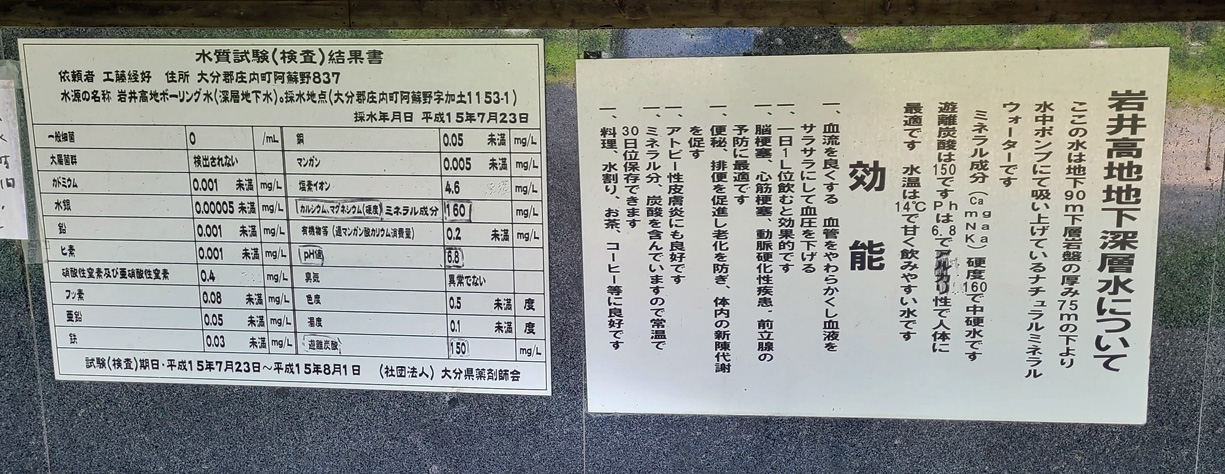 水質試験(検査)結果書
依頼者 工藤経好 住所 大分郡庄内町阿蘇野837
水源の名称 岩井高地ボーリング水(深層地下水)。採水地点(大分郡庄内町阿蘇野字加土1153-1)
採水年月日 平成15年7月23日
一般細菌 0 /mL
大腸菌群 検出されない
カドミウム 0.001 未満 mg/L
水銀 0.00005 未満 mg/L
鉛 0.001 未満 mg/L
ヒ素 0.001 未満 mg/L
硝酸性窒素及び亜硝酸性窒素 0.4 mg/L
フッ素 0.08 未満 mg/L
亜鉛 0.05 未満 mg/L
鉄 0.03 未満 mg/L
銅 0.05 未満 mg/L
マンガン 0.005 未満 mg/L
塩素イオン 4.6 mg/L
カルシウム、マグネシウム(硬度)ミネラル成分 160 mg/L
有機物等(過マンガン酸カリウム消費量) 0.2 未満 mg/L
pH値 6.8
臭気 異常でない
色度 0.5 未満 度
濁度 0.1 未満 度
遊離炭酸 150 mg/L
試験(検査)期日・平成15年7月23日〜平成15年8月1日 (社団法人) 大分県薬剤師会
岩井高地地下深層水について
ここの水は地下90m下層岩盤の厚み75mの下より
水中ポンプにて吸い上げているナチュラルミネラル
ウォーターです
ミネラル成分(Ca mg Na K)硬度160で中硬水です
遊離炭酸は150です Phは6.8で 性で人体に
最適です 水温は14℃で甘く飲みやすい水です
効能
一、血流を良くする 血管をやわらかくし血液を
サラサラにして血圧を下げる
一、一日1L位飲むと効果的です
一、脳梗塞、心筋梗塞、動脈硬化性疾患、前立腺の
予防に最適です
一、便秘、排便を促進し老化を防ぎ、体内の新陳代謝
を促す
一、アトピー性皮膚炎にも良好です
一、ミネラル分、炭酸を含んでいますので常温で
30日位保存できます
一、料理、水割り、お茶、コーヒー等に良好です